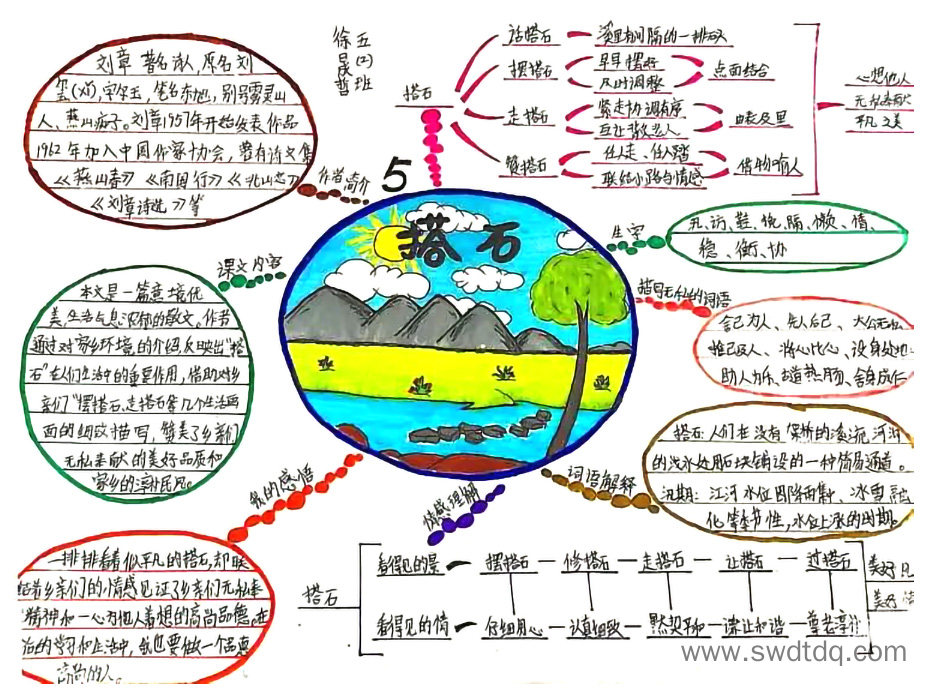 五(2)班
徐
哲
5
搭石
作者简介
刘章 著名诗人，原名刘
玺(xǐ)，字尔玉，笔名东旭，别号雾灵山
人、燕山痴子。刘章1957年开始发表作品
1962年加入中国作家协会，著有诗文集
《燕山春》《南国行》《北山恋》
《刘章诗选》等
搭石
话搭石
溪里有间隔的一排
摆搭石
早早摆好
及时调整
点面结合
走搭石
紧走协调有序
由表及里
赞搭石
任人走、任人踏
联结小路与情感
借物喻人
心想他人
无私奉献
平凡之美
生字
访、鞋、隔、懒、惰、
稳、衡、协
课文内容
本文是一篇意境优
美,生活气息浓郁的散文,作者
通过对家乡环境的介绍,反映出"搭
石"在人们生活中的重要作用，借助对乡
亲们"摆搭石、走搭石等几个生活画
面的细致描写，赞美了乡亲们
无私奉献的美好品质和
家乡的淳朴民风。
描写无私的词语
舍己为人、先人后己、大公无私
推己及人、将心比心、设身处地
助人为乐、古道热肠、舍身成仁
词语解释
搭石：人们在没有架桥的
的浅水处用石块铺设的一种简易通道。
汛期：江河水位因降雨集中、冰雪融
化等季节性,水位上涨的时期。
我的感悟
一排排看着似平凡的搭石,却联
结着乡亲们的情感见证了乡亲们无私奉
精神和一心为他人着想的高尚品德。在
活的学习和生活中，我也要做一个品德
高尚的人。
情感理解
搭石
看得见的景
摆搭石
修搭石
走搭石
让搭石
过搭石
看得见的情
仔细用心
认真细致
默契平和
谦让和谐
美好
美好
www.swdtdq.com